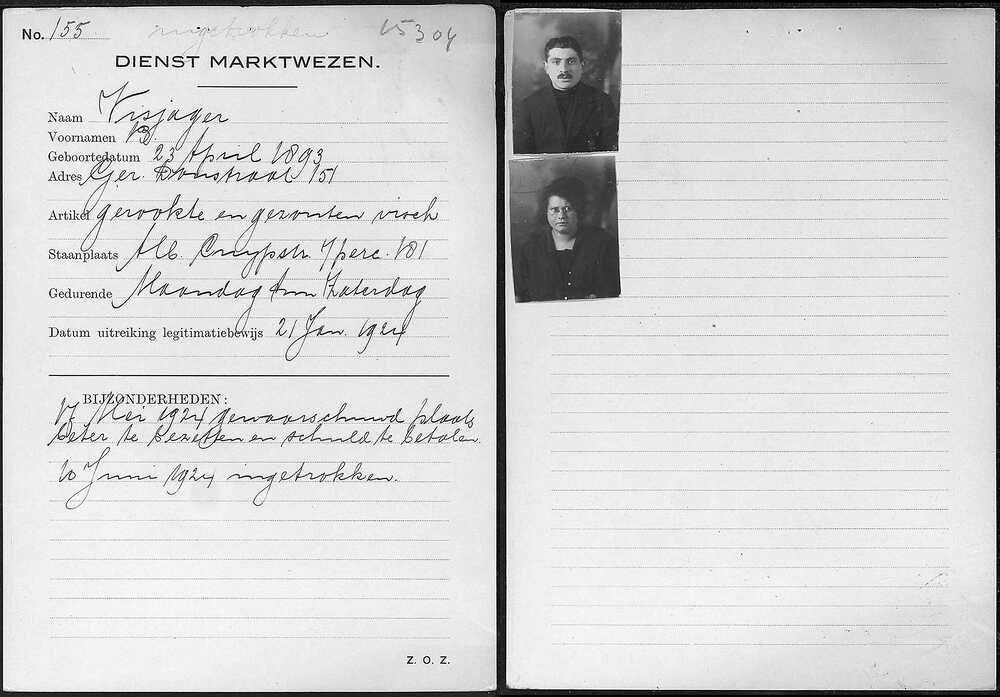 No. 155 ingetrokken 15304
DIENST MARKTWEZEN.
Naam Visjager
Voornamen B.
Geboortedatum 23 April 1893
Adres Ger. Doustraat 151
Artikel gerookte en gezouten visch
Staanplaats Alb. Cuypstr. 7 perc. 181
Gedurende Maandag t/m Zaterdag
Datum uitreiking legitimatiebewijs 21 Jan. 1924
BIJZONDERHEDEN:
17 Mei 1924 gewaarschuwd plaats
beter te bezetten en schuld te betalen.
10 Juni 1924 ingetrokken.
Z. O. Z.